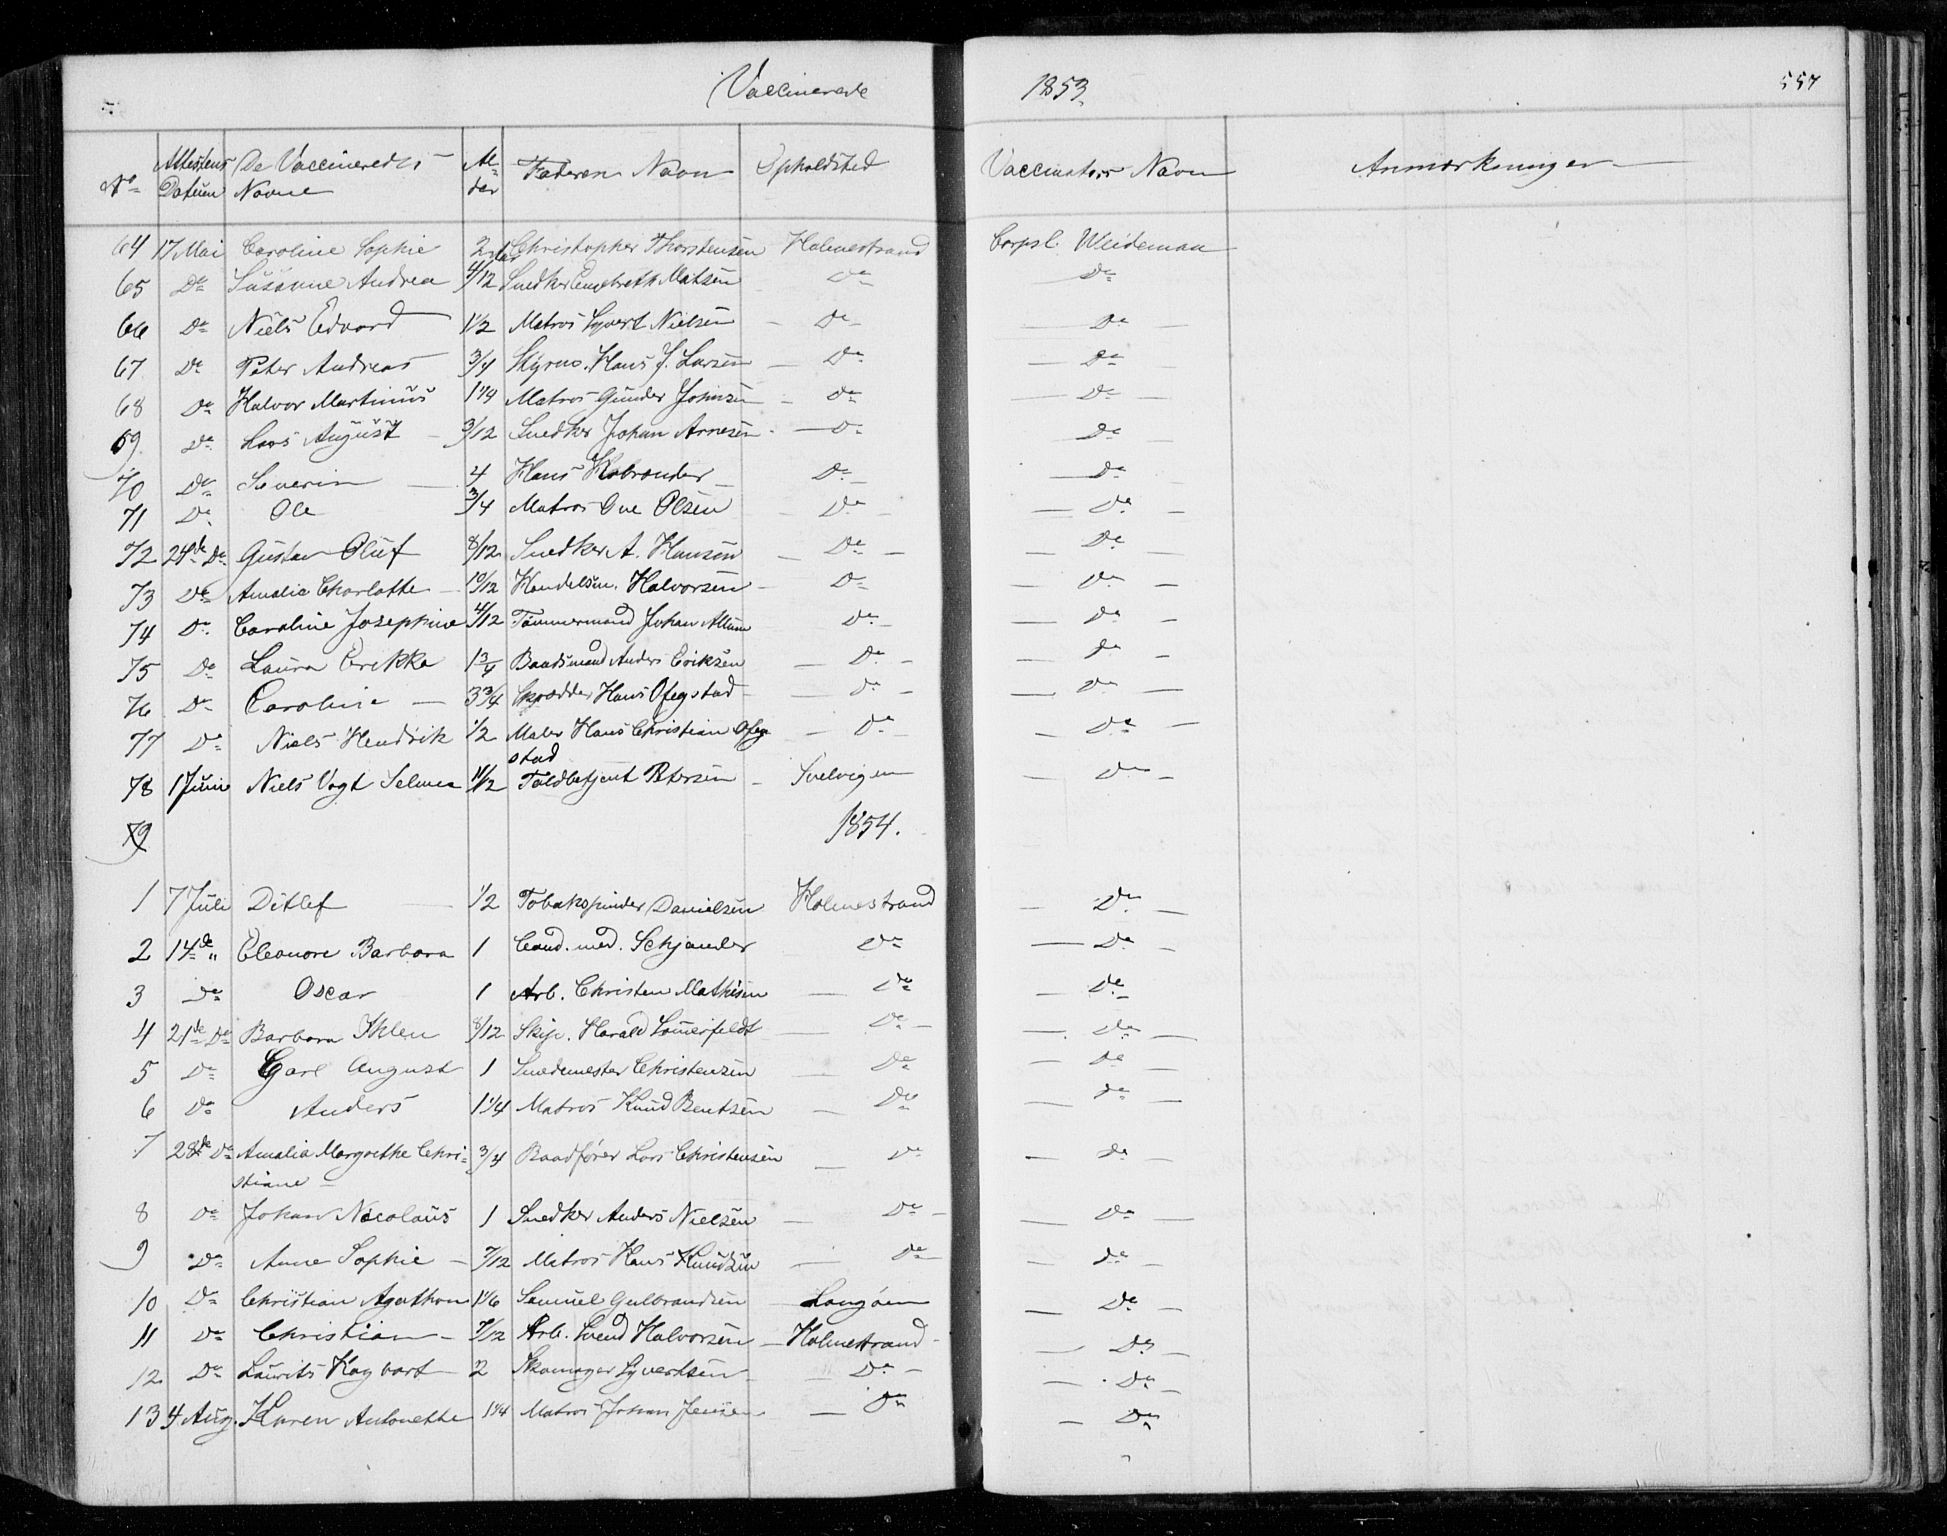 Vaccinerede 1853. 557
No Attestens Datum De Vaccineredes Navne Alder Faderens Navn Opholdsted Vaccinators Navn Anmærkninger
64 17 Mai Caroline Sophie 2 Christopher Thorstensen Holmestrand Corpsl. Weideman
65 Do Susanne Andrea 4/12 Snedker Engebreth Matsen Do Do
66 Do Niels Edvard 1 1/2 Matros Syvert Nielsen Do Do
67 Do Peter Andreas 3/4 Skyrm. Hans J. Larsen Do Do
68 Do Halvor Martinius 1 1/4 Matros Gunder Johnsen Do Do
69. Do Lars August 3/12 Snedker Johan Arnesen Do Do
70 Do Severin 4 Hans Do Do
71 Do Ole 3/4 Matros Ove Olsen Do Do
72 24de Do Gustav Oluf 8/12 Snedker A. Hansen Do Do
73 Do Amalia Charlotte 10/12 Handelsm. Halvorsen Do Do
74 Do Caroline Josephine 4/12 Tømmermand Johan Allum Do Do
75 Do Laura Erikka 1 3/4 Baadsmand Anders Eriksen Do Do
76 Do Caroline 3 3/4 Skrædder Hans Ofegstad Do Do
77 Do Niels Hendrik 1/2 Maler Hans Christian Ofeg-
stad Do Do
78 1 Juni Niels Vogt Selmer 11/12 Toldbetjent Petersen Svelvigen Do
79 1854.
1 7 Juli Ditlef 1/2 Tobakspinder Danielsen Holmestrand Do
2 14de " Eleonore Barbara 1 Cand. med. Schjander Do Do
3 Do Oscar 1 Arb. Christen Mathisen Do Do
4 21de Do Barbara Ihlen 8/12 Skip. Harald Somerfeldt Do Do
5 Do Carl August 1 Smedemester Christensen Do Do
6 Do Anders 1 1/4 Matros Knud Bentsen Do Do
7 28de Do Amalia Margrethe Chri- 3/4 Baadfører Lars Christensen Do Do
stiane
8 Do Johan Nicolaus 1 Snedker Anders Nielsen Do Do
9 Do Anne Sophie 7/12 Matros Hans Knudsen Do Do
10 Do Christian Agathon 1 1/6 Samuel Gulbrandsen Langøen Do
11 Do Christian 7/12 Arb. Svend Halvorsen Holmestrand Do
12 Do Laurits Hagbart 2 Skomager Syvertsen Do Do
13 4 Aug. Karen Antonette 1 1/4 Matros Johan Jensen Do Do